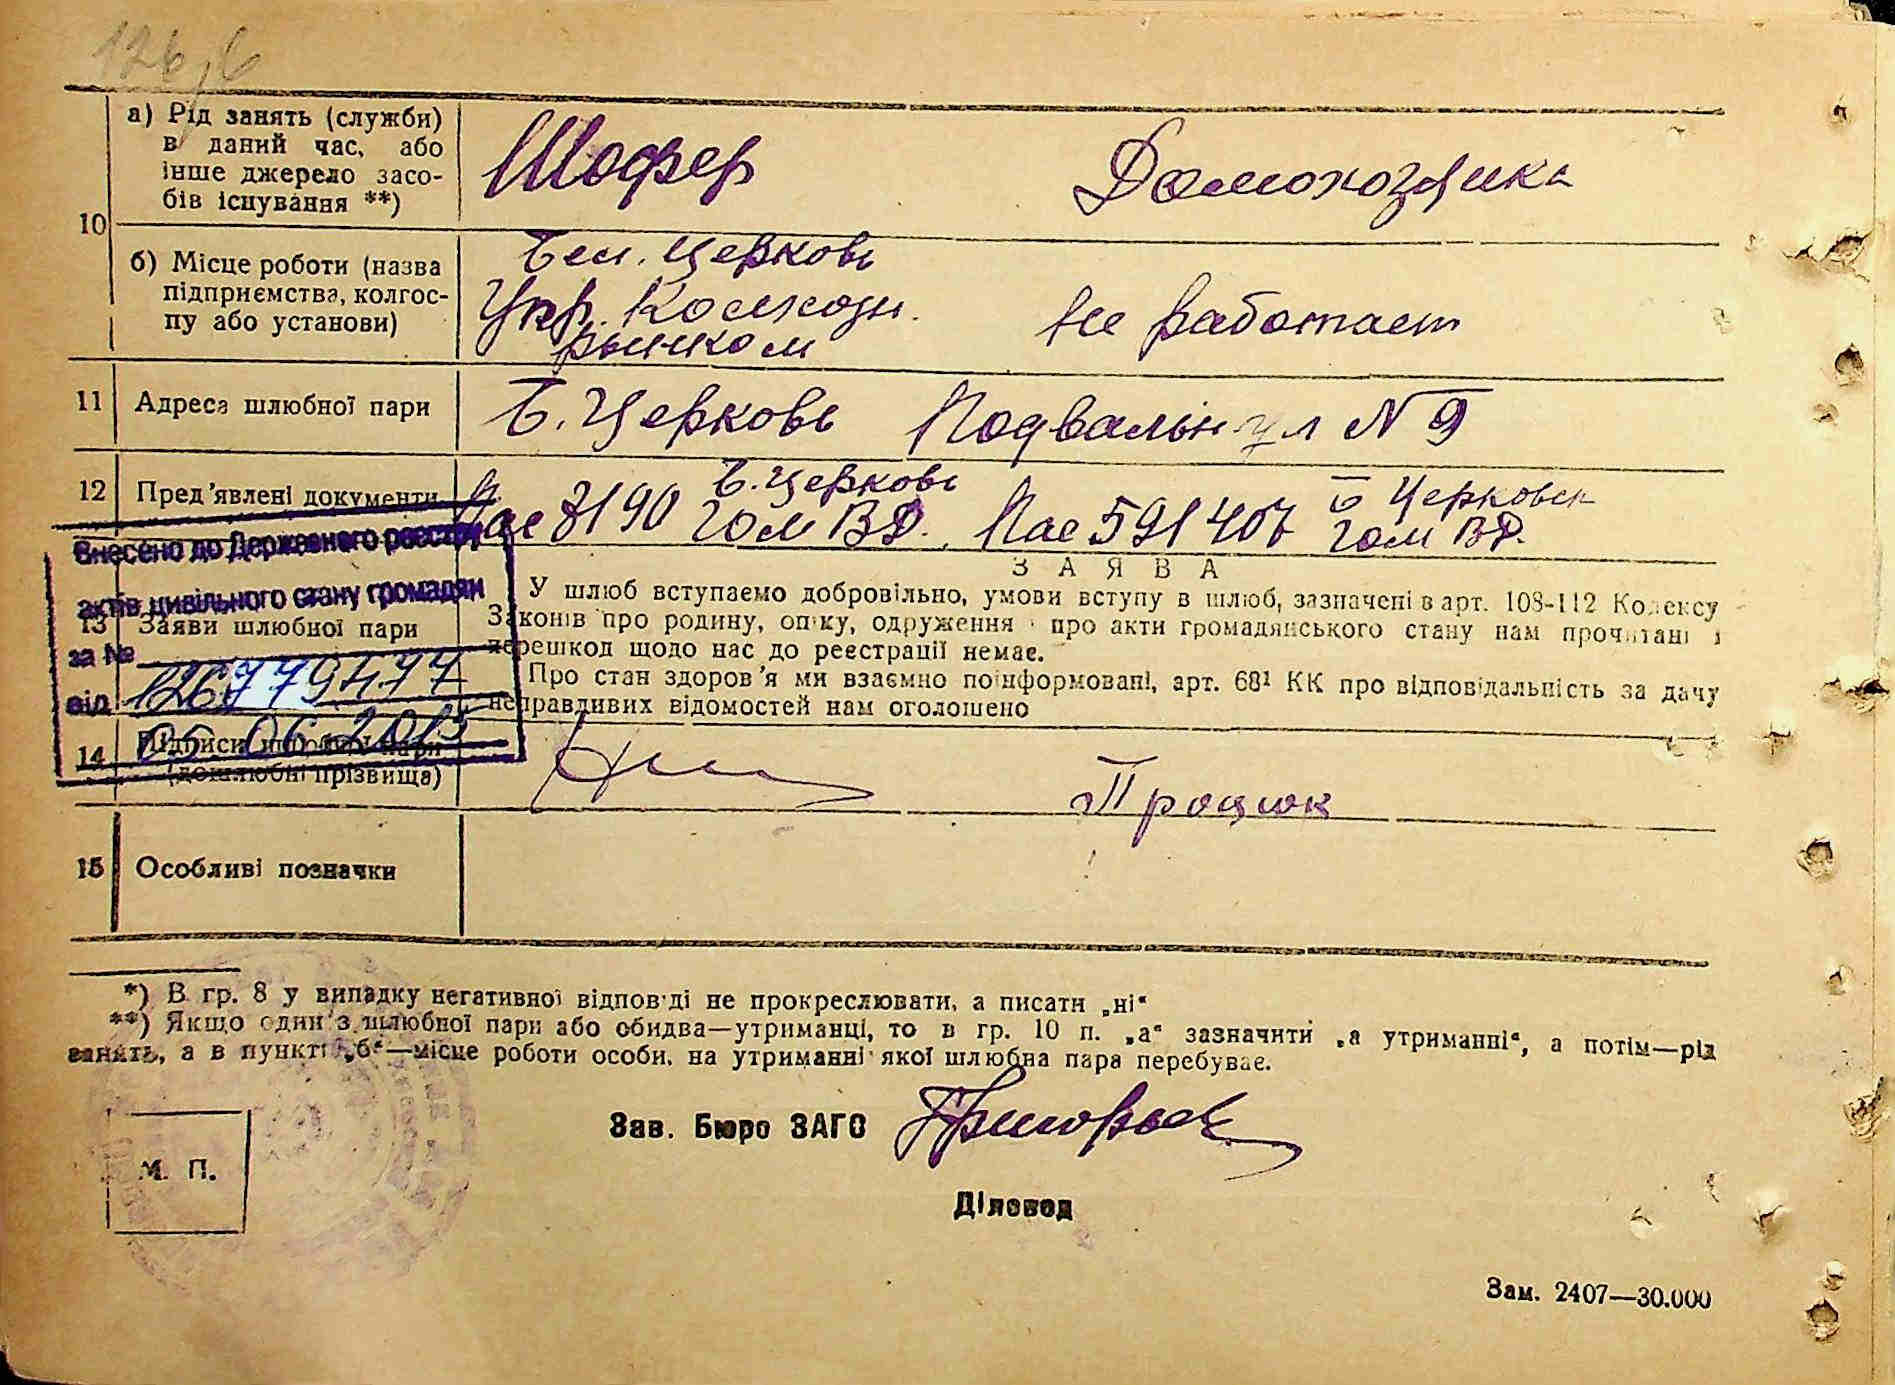 126,6
10
а) Рід занять (служби)
в даний час, або
інше джерело засо-
бів існування **)
Шофер
Домохозяйка
б) Місце роботи (назва
підприємства, колгос-
пу або установи)
Бел. Церковь
Упр. Колхозн.
рынком
Не работает
11
Адреса шлюбної пари
Б. Церковь Подвальн ул N 9
12
Пред'явлені документи
Б. Церковь
Гом ВД.
Пас 591407
Гом ВД.
Внесено до Державного реєстру
актів цивільного стану громадян
за №
126779477
від
05 06 2015
13
Заяви шлюбної пари
ЗАЯВА
У шлюб вступаємо добровільно, умови вступу в шлюб, зазначені в арт. 108-112 Кодексу
Законів про родину, опіку, одруження і про акти громадянського стану нам прочитані і
перешкод щодо нас до реєстрації немає.
Про стан здоров'я ми взаємно поінформовані, арт. 68¹ КК про відповідальність за дачу
неправдивих відомостей нам оголошено
14
Підписи шлюбної пари
(дошлюбні прізвища)
Процюк
15
Особливі позначки
*) В гр. 8 у випадку негативної відповіді не прокреслювати, а писати „ні“
**) Якщо один з шлюбної пари або обидва—утриманці, то в гр. 10 п. „а“ зазначити „а утриманні“, а потім—рід
занять, а в пункті „б“—місце роботи особи, на утриманні якої шлюбна пара перебуває.
Зав. Бюро ЗАГС
М. П.
Діловод
Зам. 2407—30.000